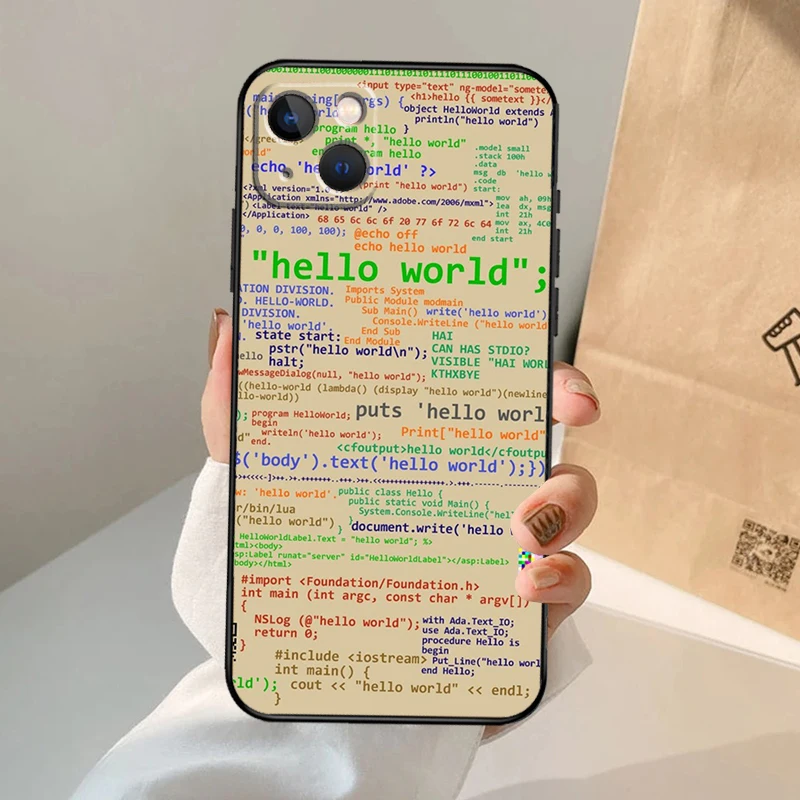 01011110010000001110111101011101110111001001101100
<input type="text" ng-model="somete
<h1>hello {{ sometext }}</
args) {
object HelloWorld extends A
println("hello world")
program hello }
print *, "hello world"
program hello
.model small
.stack 100h
.data
msg db 'hello w
.code
start:
echo 'he rld' ?>
(print "hello world")
<?xml version="1.
<Application xmlns="http://www.adobe.com/2006/mxml">
<Label text="hello world" />
</Application>
mov ah, 09h
lea dx, msg
int 21h
mov ax, 4C0
int 21h
end start
68 65 6c 6c 6f 20 77 6f 72 6c 64
0, 0, 0, 100, 100);
@echo off
echo hello world
"hello world";
ATION DIVISION.
D. HELLO-WORLD.
DIVISION.
'hello world'.
Imports System
Public Module modmain
Sub Main()
Console.WriteLine ("hello world
End Sub
End Module
write('hello world')
state start:
pstr("hello world\n");
halt;
HAI
CAN HAS STDIO?
VISIBLE "HAI WORL
KTHXBYE
ello
wMessageDialog(null, "hello world");
((hello-world (lambda() (display "hello world")(newline
llo-world))
puts 'hello worl
program HelloWorld;
begin
writeln('hello world');
end.
Print["hello world"
<cfoutput>hello world</cfoutpu
$('body').text('hello world');})
w: 'hello world'.
public class Hello {
public static void Main() {
System.Console.WriteLine("hel
}
}
r/bin/lua
("hello world")
document.write('hello
HelloWorldLabel.Text = "hello world"; %>
tml><body>
sp:Label runat="server" id="HelloWorldLabel"></asp:Label>
body></html>
#import <Foundation/Foundation.h>
int main (int argc, const char * argv[])
{
NSLog (@"hello world");
return 0;
}
with Ada.Text_IO;
use Ada.Text_IO;
procedure Hello is
begin
Put_Line("hello worl
end Hello;
#include <iostream>
int main() {
ld');
cout << "hello world" << endl;
}